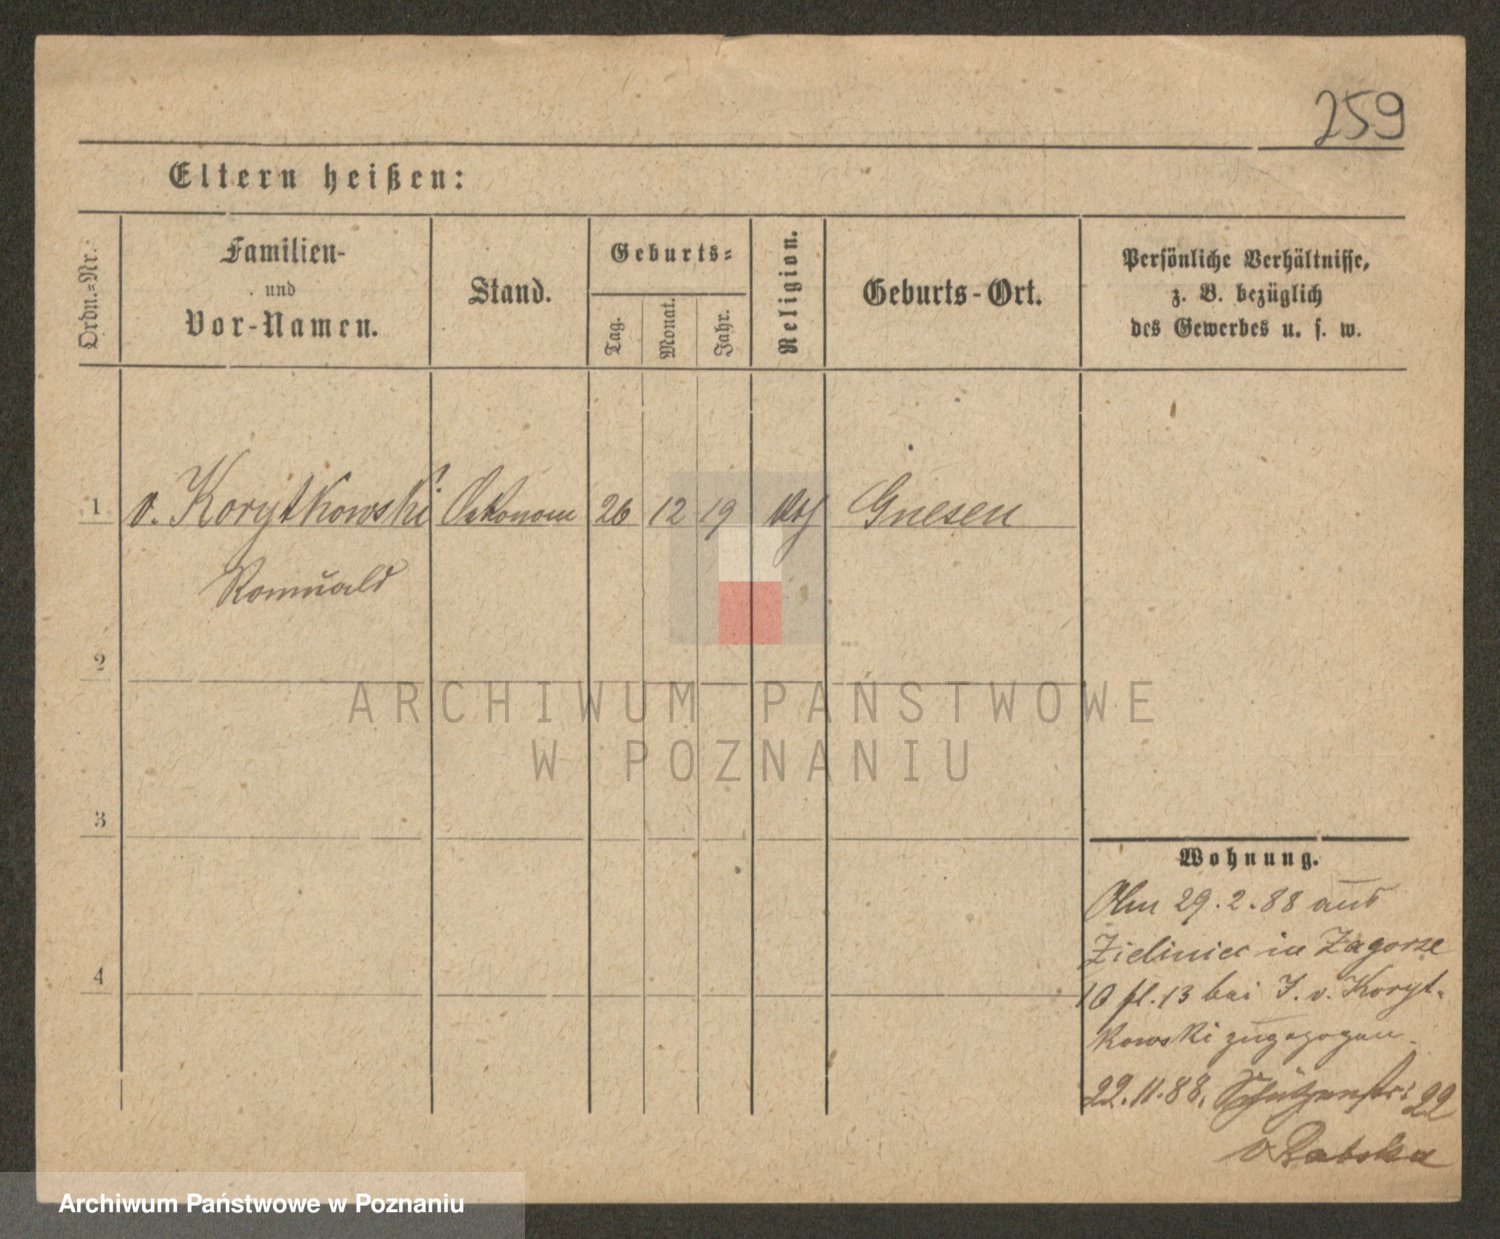 259
Eltern heißen:
Ordn.-Nr.
Familien-
und
Vor-Namen.
Stand.
Geburts-
Tag.
Monat.
Jahr.
Religion.
Geburts-Ort.
Persönliche Verhältnisse,
z. B. bezüglich
des Gewerbes u. s. w.
1 v. Korytkowski Oekonom 26 12 19 kth Gnesen
Romuald
2
ARCHIWUM PAŃSTWOWE
W POZNANIU
3
4
Wohnung.
Am 29.2.88 aus
Zieliniec in Zagorze
10 fl. 13 bei J. v. Koryt-
kowski zugezogen.
22.11.88, Schützenstr: 22
v Rabska
Archiwum Państwowe w Poznaniu